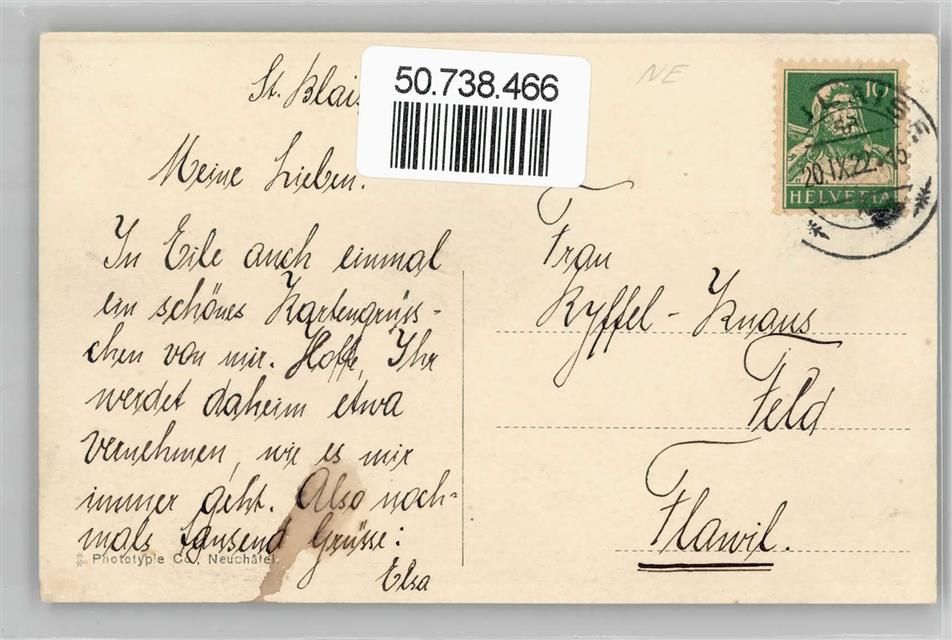 St. Blais
50.738.466
NE
Meine Lieben.
In Eile auch einmal
ein schönes Kartengrüss-
chen von mir. Hoffe, Ihr
werdet daheim etwa
vernehmen, wie es mir
immer geht. Also noch-
mals tausend Grüsse:
Elsa
Phototypie Co., Neuchâtel.
10
HELVETIA
20.IX.22.
Frau
Ryffel-Knaus
Feld
Flawil.